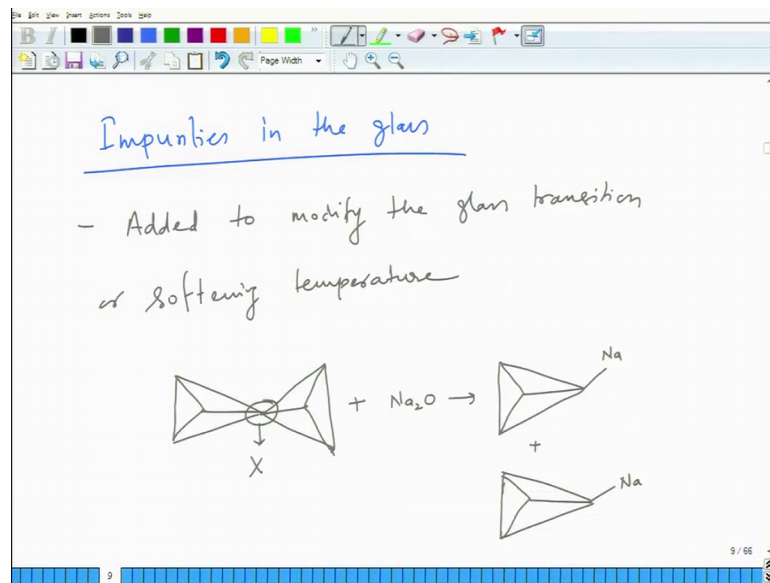 File Edit View Insert Actions Tools Help
B I
Page Width
Impurities in the glass
- Added to modify the glass transition
or softening temperature
Na
+ Na2O →
X
+
Na
9 / 66
9